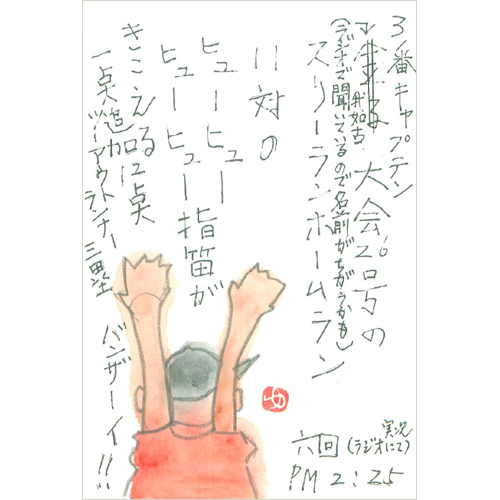 3番キャプテン
我如古 大会26号の
(ラジオで聞いているので名前がちがうかも)
スリーランホームラン
11対の
ヒューヒュー
ヒューヒュー指笛が
きこえる
一点追加12点
ツーアウトランナー三塁
バンザーイ!!
六回 実況(ラジオにて)
PM 2:25